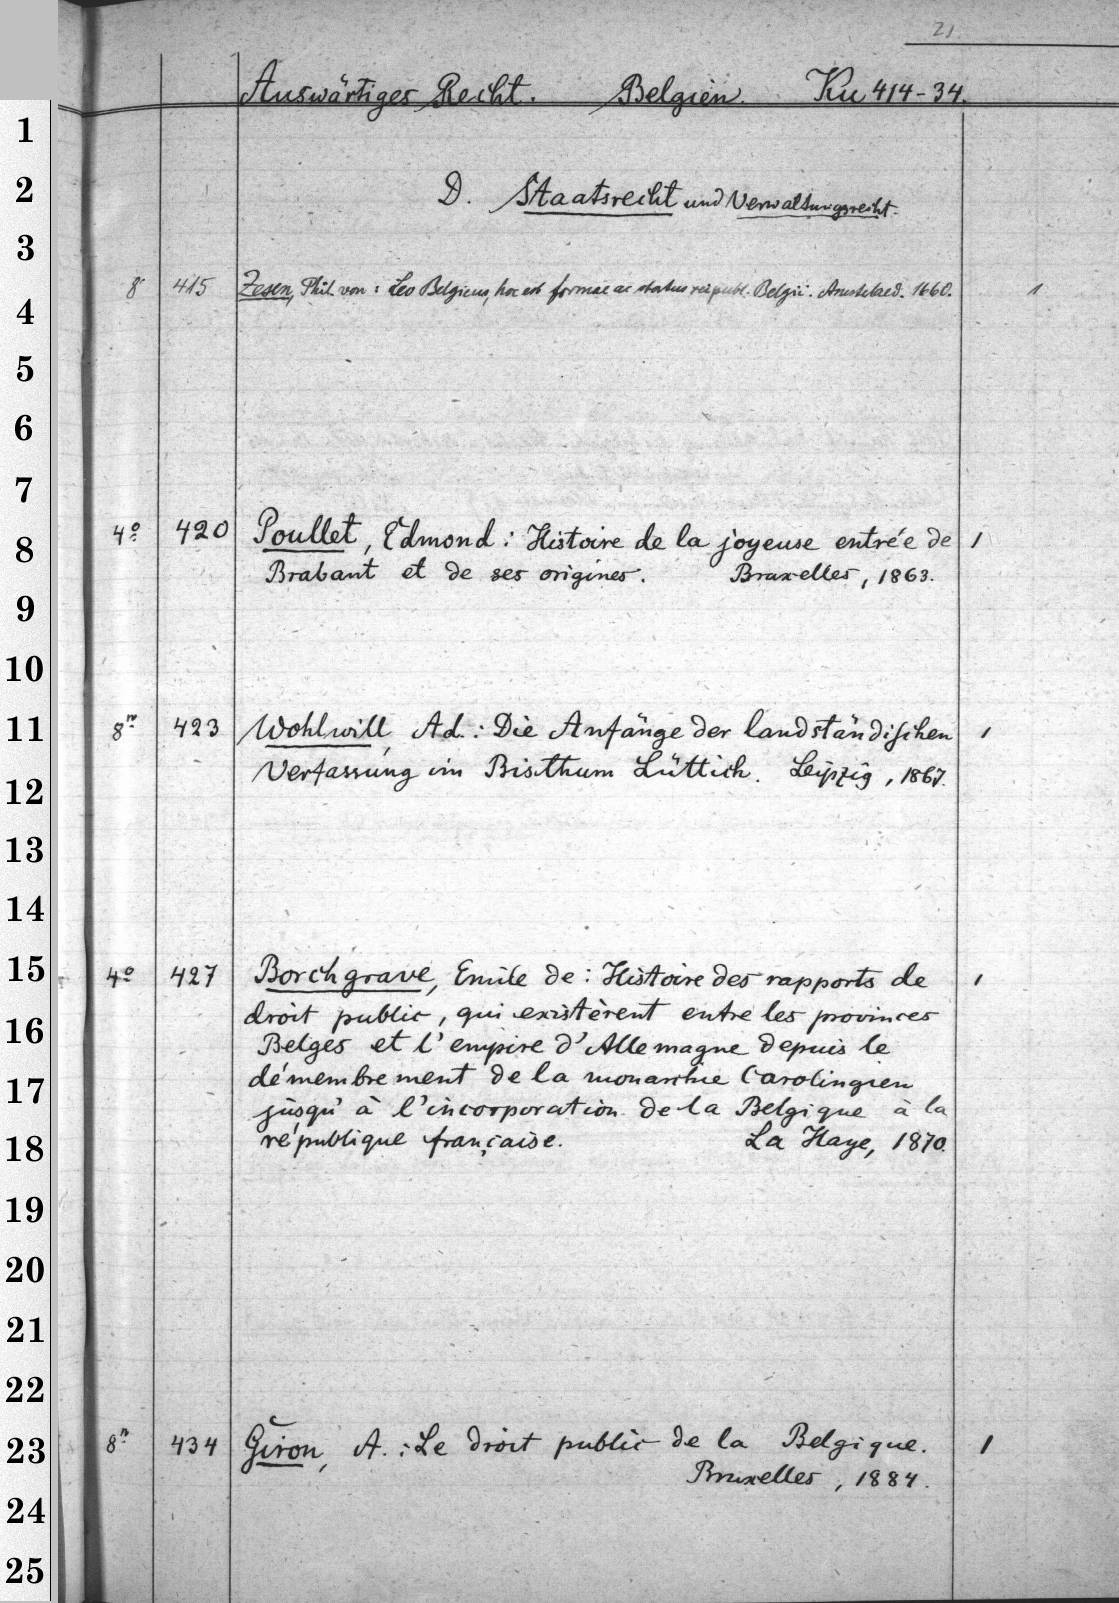 21
Auswärtiges Recht. Belgien. Ku 414-34.
D. Staatsrecht und Verwaltungsrecht.
8 415 Zesen, Phil. von: Leo Belgicus, hoc est formae ac status reipubl. Belgii. Amstelaed. 1660. 1
4º 420 Poullet, Edmond: Histoire de la joyeuse entrée de 1
Brabant et de ses origines. Bruxelles, 1863.
8º 423 Wohlwill, Ad.: Die Anfänge der landständischen 1
Verfassung im Bisthum Lüttich. Leipzig, 1867.
4º 427 Borchgrave, Emile de: Histoire des rapports de 1
droit public, qui existèrent entre les provinces
Belges et l'empire d'Allemagne depuis le
démembrement de la monarchie Carolingien
jusqu'à l'incorporation de la Belgique à la
république française. La Haye, 1870.
8º 434 Giron, A.: Le droit public de la Belgique. 1
Bruxelles, 1884.
1
2
3
4
5
6
7
8
9
10
11
12
13
14
15
16
17
18
19
20
21
22
23
24
25